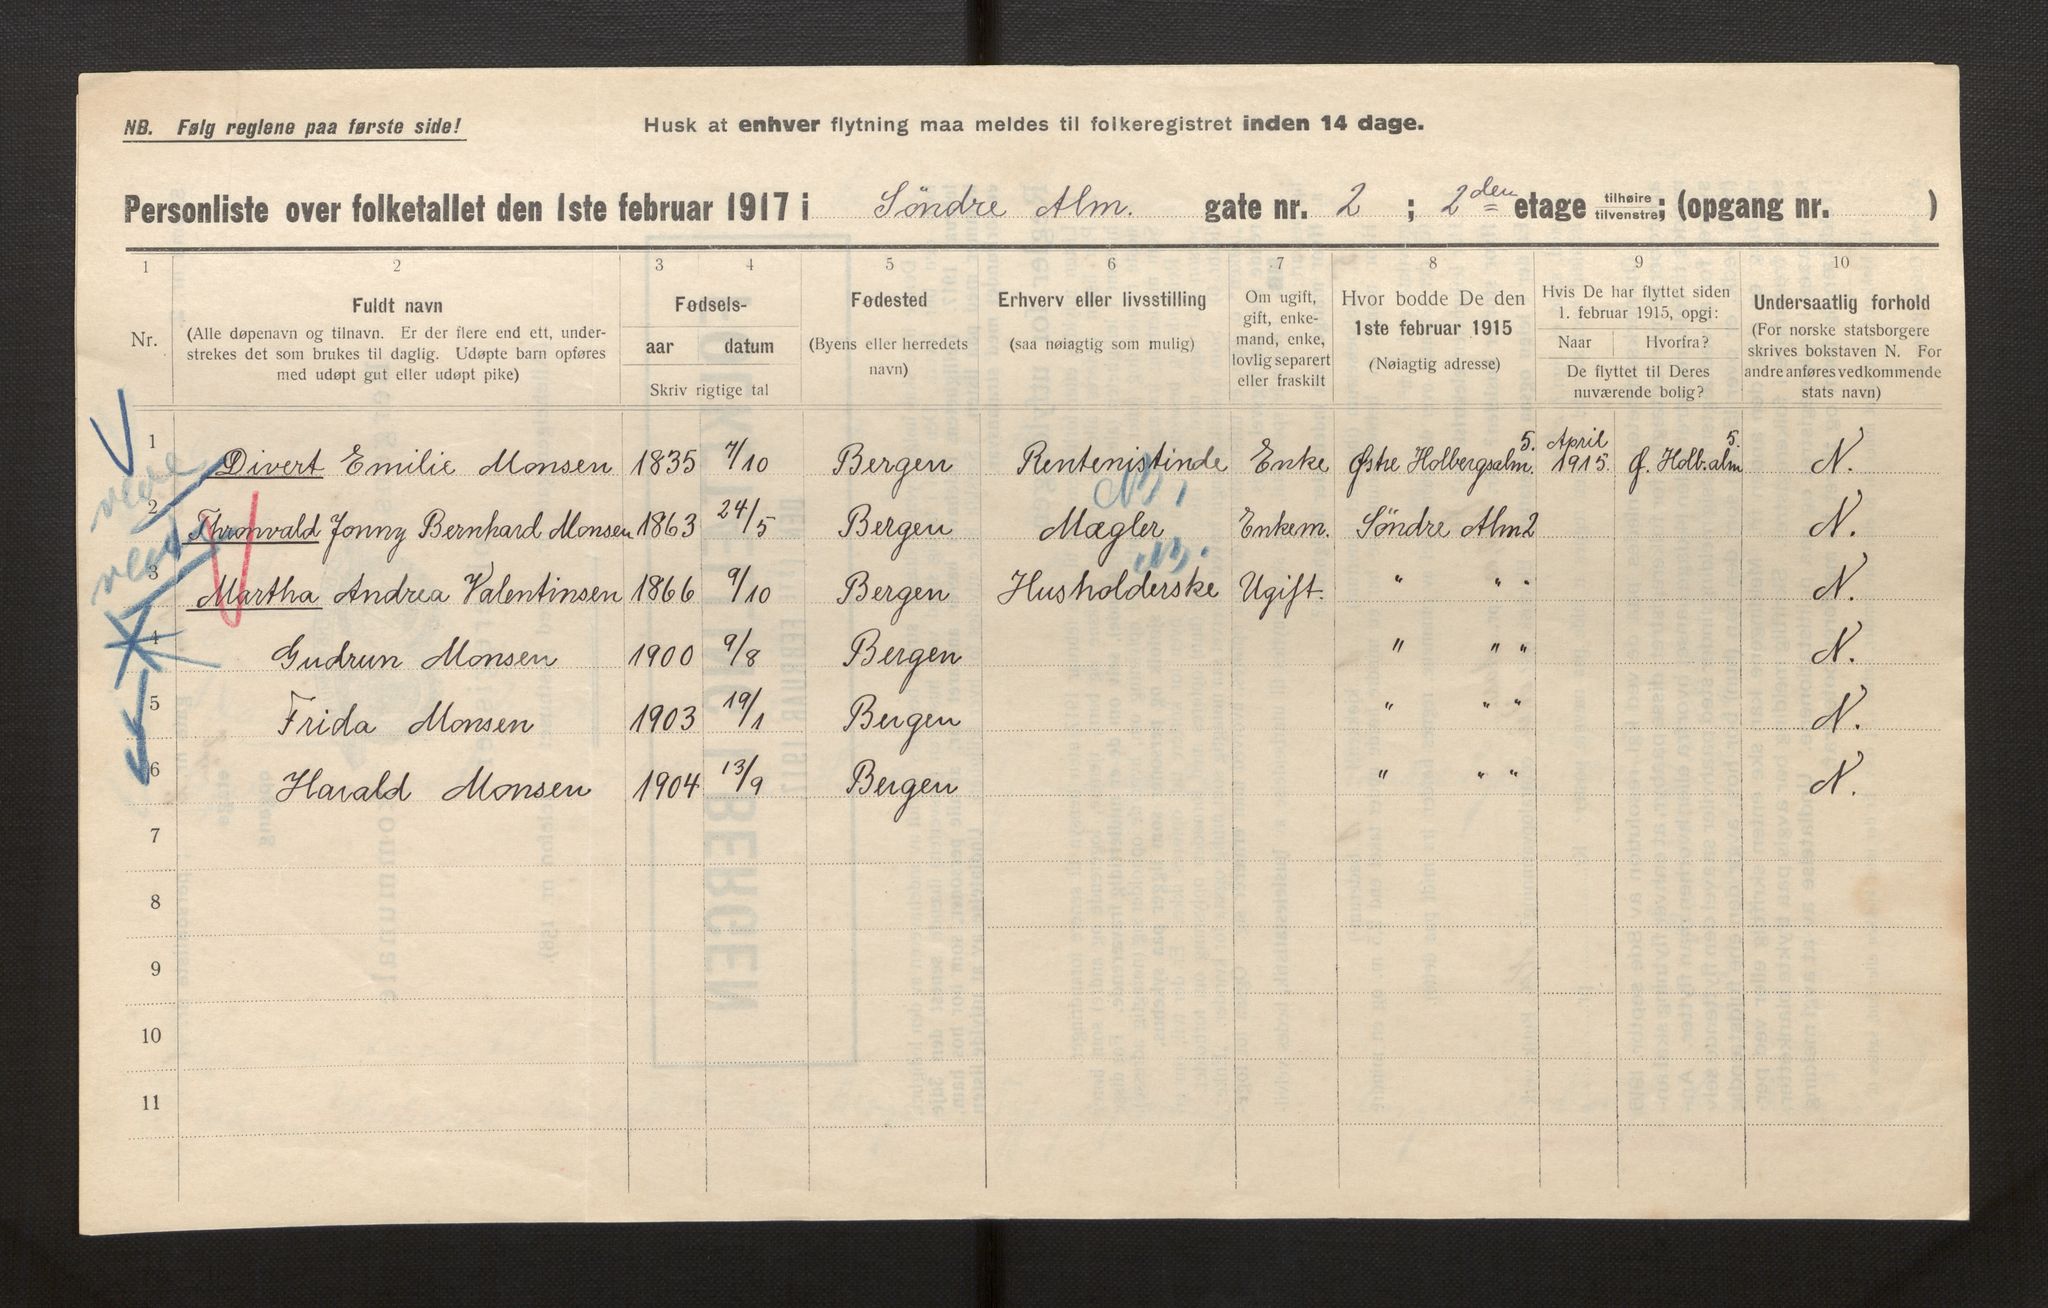 NB. Følg reglene paa første side!
Husk at enhver flytning maa meldes til folkeregistret inden 14 dage.
Personliste over folketallet den 1ste februar 1917 i Søndre Alm. gate nr. 2 ; 2den etage tilhøire tilvenstre; (opgang nr. )
1 2 3 4 5 6 7 8 9 10
Nr.
Fuldt navn
(Alle døpenavn og tilnavn. Er der flere end ett, under-
strekes det som brukes til daglig. Udøpte barn opføres
med udøpt gut eller udøpt pike)
Fødsels-
aar datum
Skriv rigtige tal
Fødested
(Byens eller herredets
navn)
Erhverv eller livsstilling
(saa nøiagtig som mulig)
Om ugift,
gift, enke-
mand, enke,
lovlig separert
eller fraskilt
Hvor bodde De den
1ste februar 1915
(Nøiagtig adresse)
Hvis De har flyttet siden
1. februar 1915, opgi:
Naar Hvorfra?
De flyttet til Deres
nuværende bolig?
Undersaatlig forhold
(For norske statsborgere
skrives bokstaven N. For
andre anføres vedkommende
stats navn)
1 Divert Emilie Monsen 1835 7/10 Bergen Rentenistinde Enke Østre Holbergsalm. 5. April 1915. Ø. Holb.alm 5. N.
2 Thronvald Jonny Bernhard Monsen 1863 24/5 Bergen Mægler Enkem. Søndre Alm 2 N.
3 Martha Andrea Valentinsen 1866 9/10 Bergen Husholderske Ugift. " " " N.
4 Gudrun Monsen 1900 9/8 Bergen " " " N.
5 Frida Monsen 1903 19/1 Bergen " " " N.
6 Harald Monsen 1904 13/9 Bergen " " " N.
7
8
9
10
11